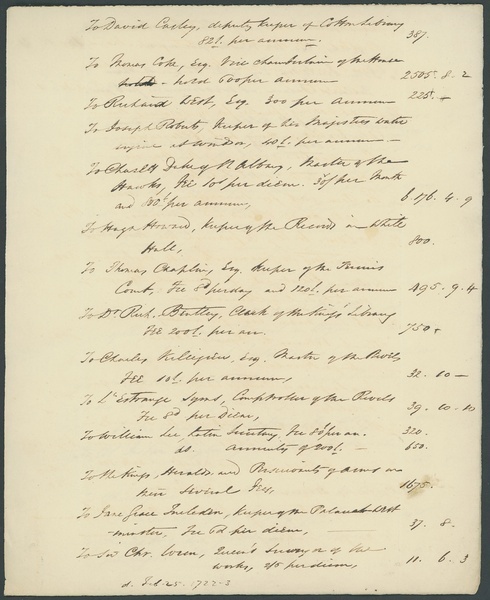 To David Casley, deputy keeper of Cotton Library
82l. per annum. 387.
To Thomas Coke, Esq. Vice chamberlain of the House
hold 600 per annum 2505. 8. 2
To Richard West, Esq. 300 per annum 225. —
To Joseph Roberts, Keeper of his Majesties water
engine at Windsor, 40l. per annum —
To Charles Duke of St Albans, Master of the
Hawks, Fee 10s per diem. 30l per Month
and 800l per annum, 6176. 4. 9
To Hugh Howard, Keeper of the Records in White
Hall, 800.
To Thomas Chaplin, Esq. Keeper of the Tennis
Court, Fee 8d per day and 120l. per annum 495. 9. 4
To Dr Rich. Bentley, Clerk of the King's Library
Fee 200l. per an. 750.
To Charles Killegrew, Esq. Master of the Revels
Fee 10l. per annum, 32. 10 —
To L'Estrange Symes, Comptroller of the Revels
Fee 8d per Diem, 39. 10. 10
To William Lee, Latin Secretary, Fee 80l per an. 320.
do. Annuity of 200l. — 650.
To the Kings, Heralds and Pursuivants of Arms on
their several Fees, 1675.
To Jane Grace Incledon, Keeper of the Palace at West
minster, Fee 6d per diem, 37. 8.
To Sir Chr. Wren, Queen's Surveyor of the
works, 2/5 per diem, 11. 6. 3
d. Feb. 25. 1722-3